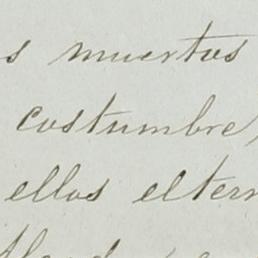 s muertos
costumbre,
ellos eltern